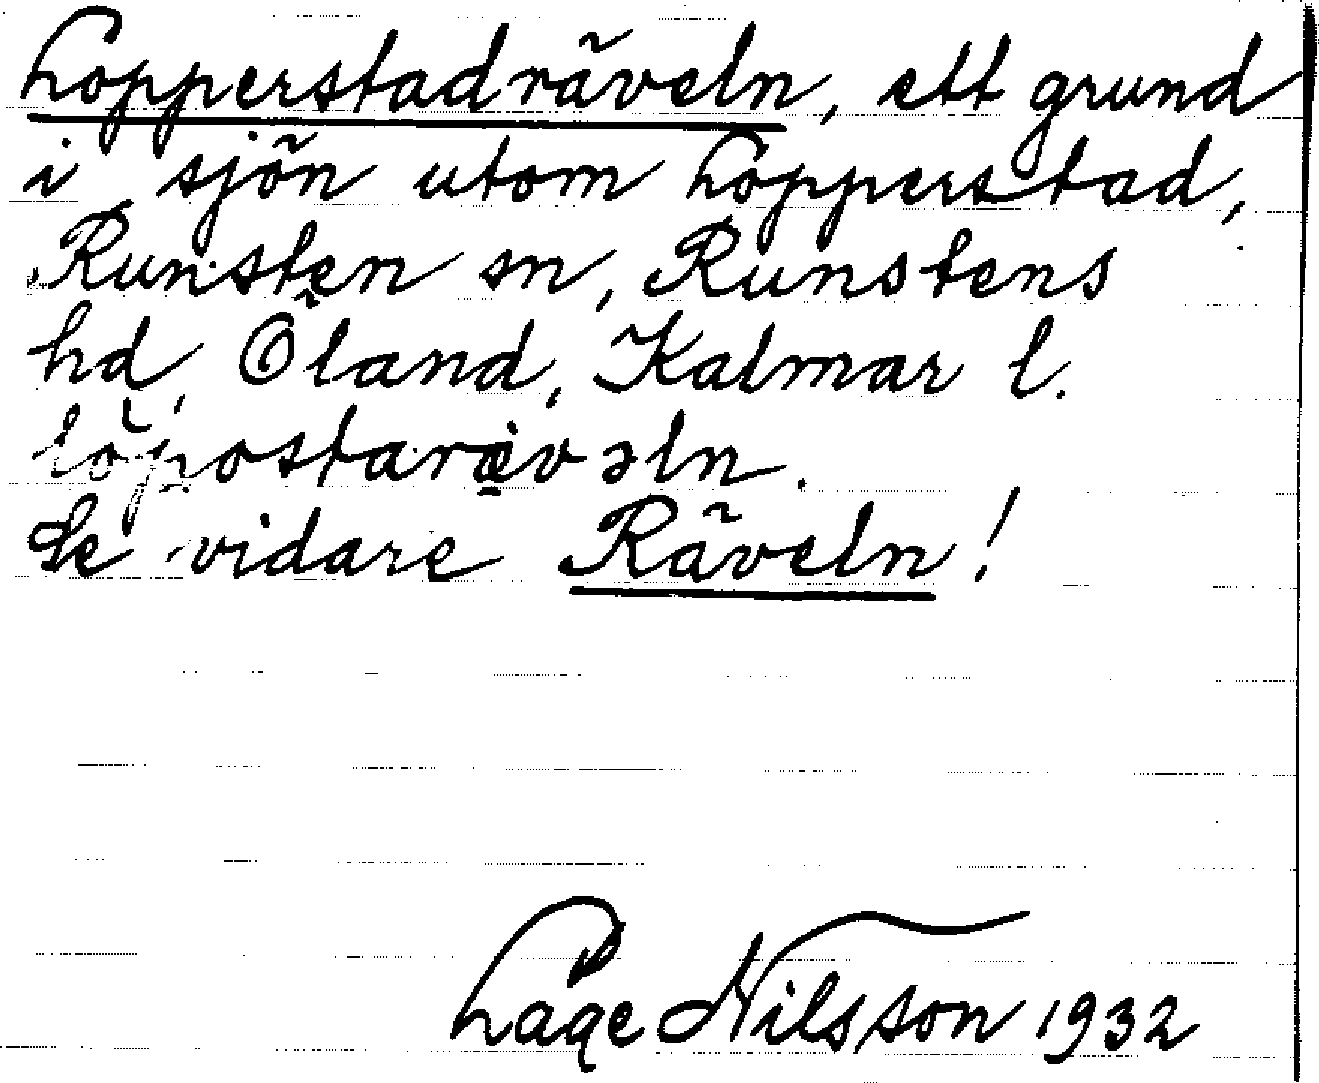 Lopperstadräveln, ett grund
i sjön utom Lopperstad,
Runsten sn, Runstens
hd, Öland, Kalmar l.
Se vidare Räveln!
Låge Nilsson 1932